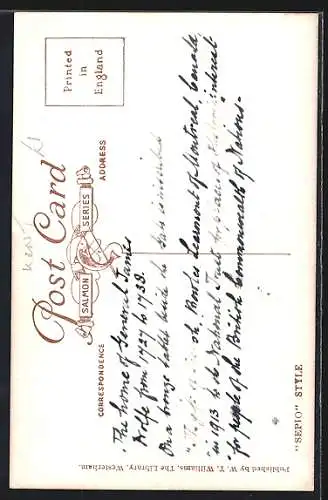 Post Card
SALMON SERIES
Printed
in
England
CORRESPONDENCE
ADDRESS
"The home of General James
Wolfe from 1727 to 1738.
On a bronze tablet beside the is inscribed
Mr. Bowles Learmont of Montreal, Canada,
"in 1913 to the National Trust for places of Historic interest
"for people of the British Commonwealth of Nations."
"SEPIO" STYLE
Published by W. T. Williams, The Library, Westerham.